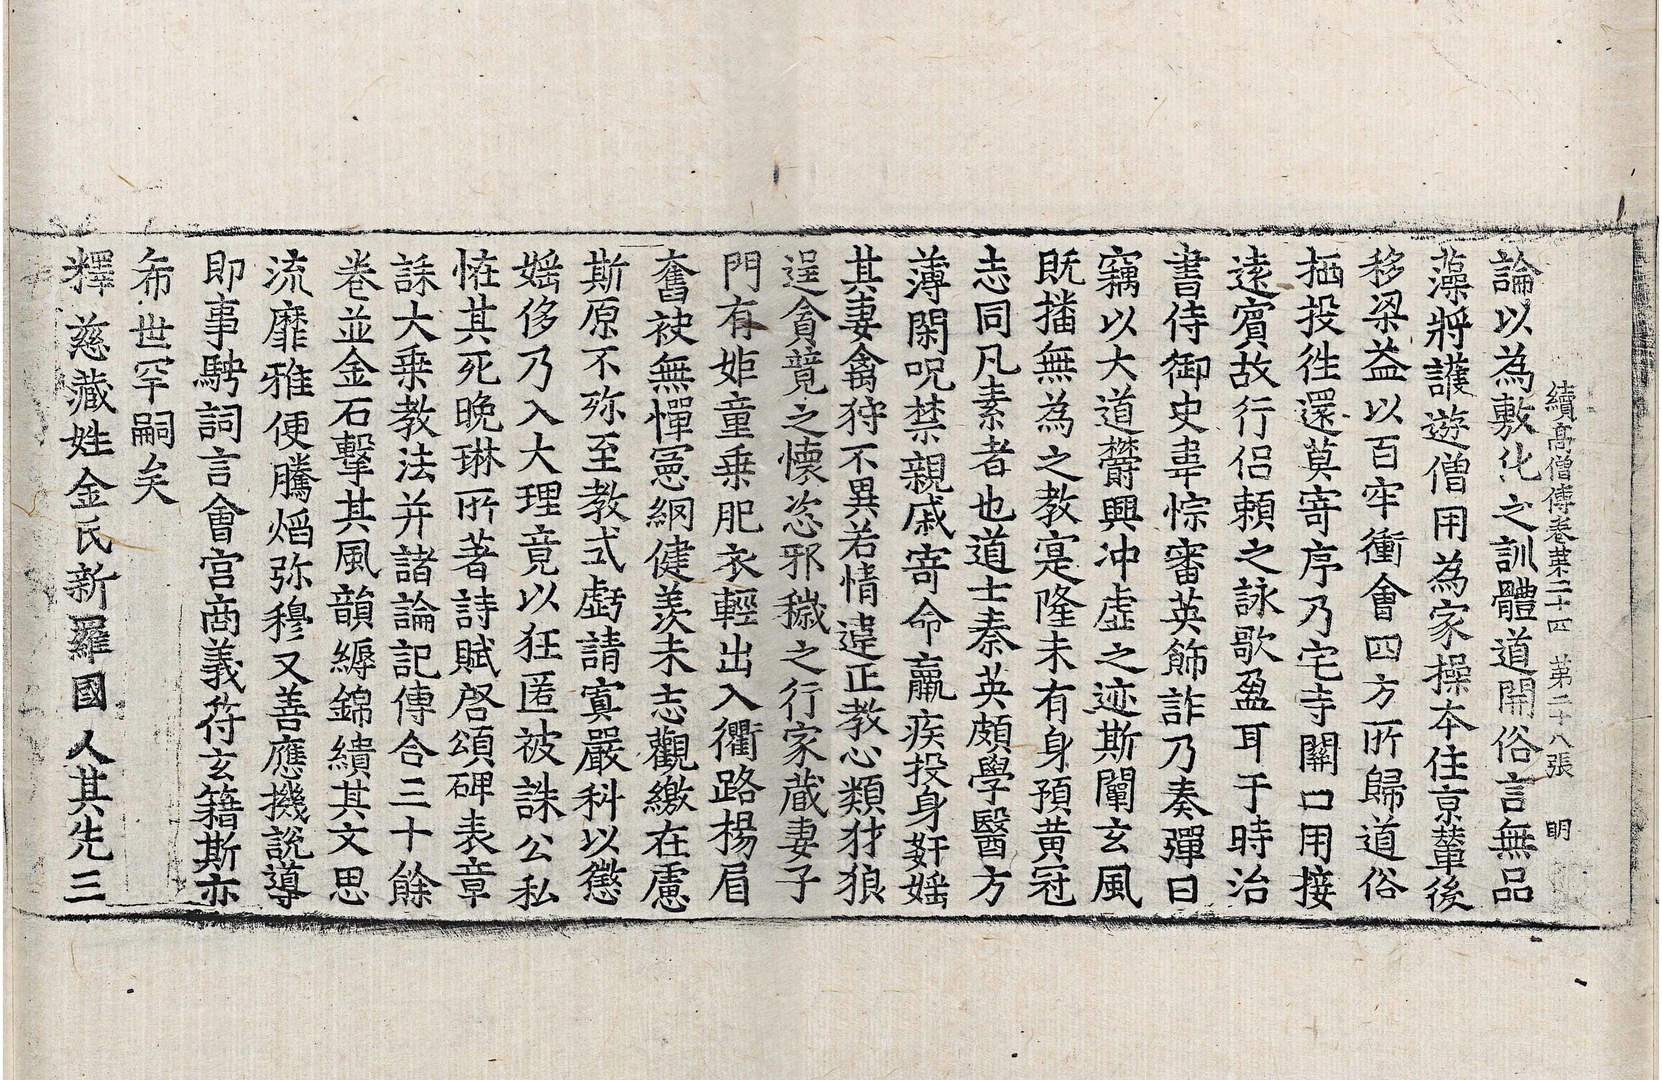 續高僧傳卷苐二十四 第二十八張 明
論以為敷化之訓體道開俗言無品
藻將護遊僧用為家操本住京輦後
移梁益以百牢衝會四方所歸道俗
栖投往還莫寄序乃宅寺關口用接
遠賓故行侶賴之詠歌盈耳于時治
書侍御史韋悰審英飾詐乃奏彈曰
竊以大道欝興冲虛之迹斯闡玄風
既播無為之教寔隆未有身預黃冠
志同凡素者也道士秦英頗學醫方
薄閑呪禁親戚寄命羸疾投身姧婬
其妻禽狩不異若情違正教心類犲狼
逞貪競之懷恣邪穢之行家藏妻子
門有姬童乗肥衣輕出入衢路揚眉
奮袂無憚憲網健羡未忘觀繳在慮
斯原不殄至教式虧請寘嚴科以懲
婬侈乃入大理竟以狂匿被誅公私
恠其死晚琳所著詩賦啓頌碑表章
誄大乗教法并諸論記傳合三十餘
卷並金石擊其風韻縟錦繢其文思
流靡雅便騰焰弥穆又善應機說導
即事騁詞言會宮商義符玄籍斯亦
希世罕嗣矣
釋慈藏姓金氏新羅國人其先三